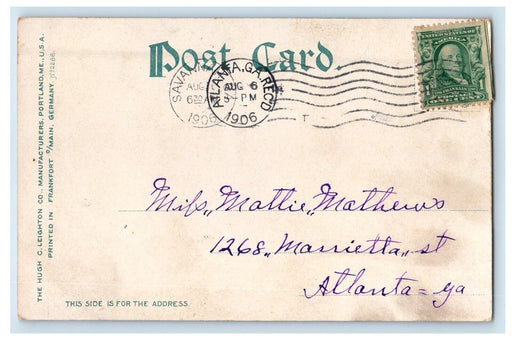 Post Card.
SAVANN
AUG
6
1906
ATLANTA, GA. REC'D
AUG 6
PM
1906
THE HUGH C. LEIGHTON CO., MANUFACTURERS, PORTLAND, ME., U.S.A.
PRINTED IN FRANKFORT O/MAIN, GERMANY
Miss,, Mattie,, Mathews
1268,, Marrietta,, st
Atlanta = ga
THIS SIDE IS FOR THE ADDRESS.